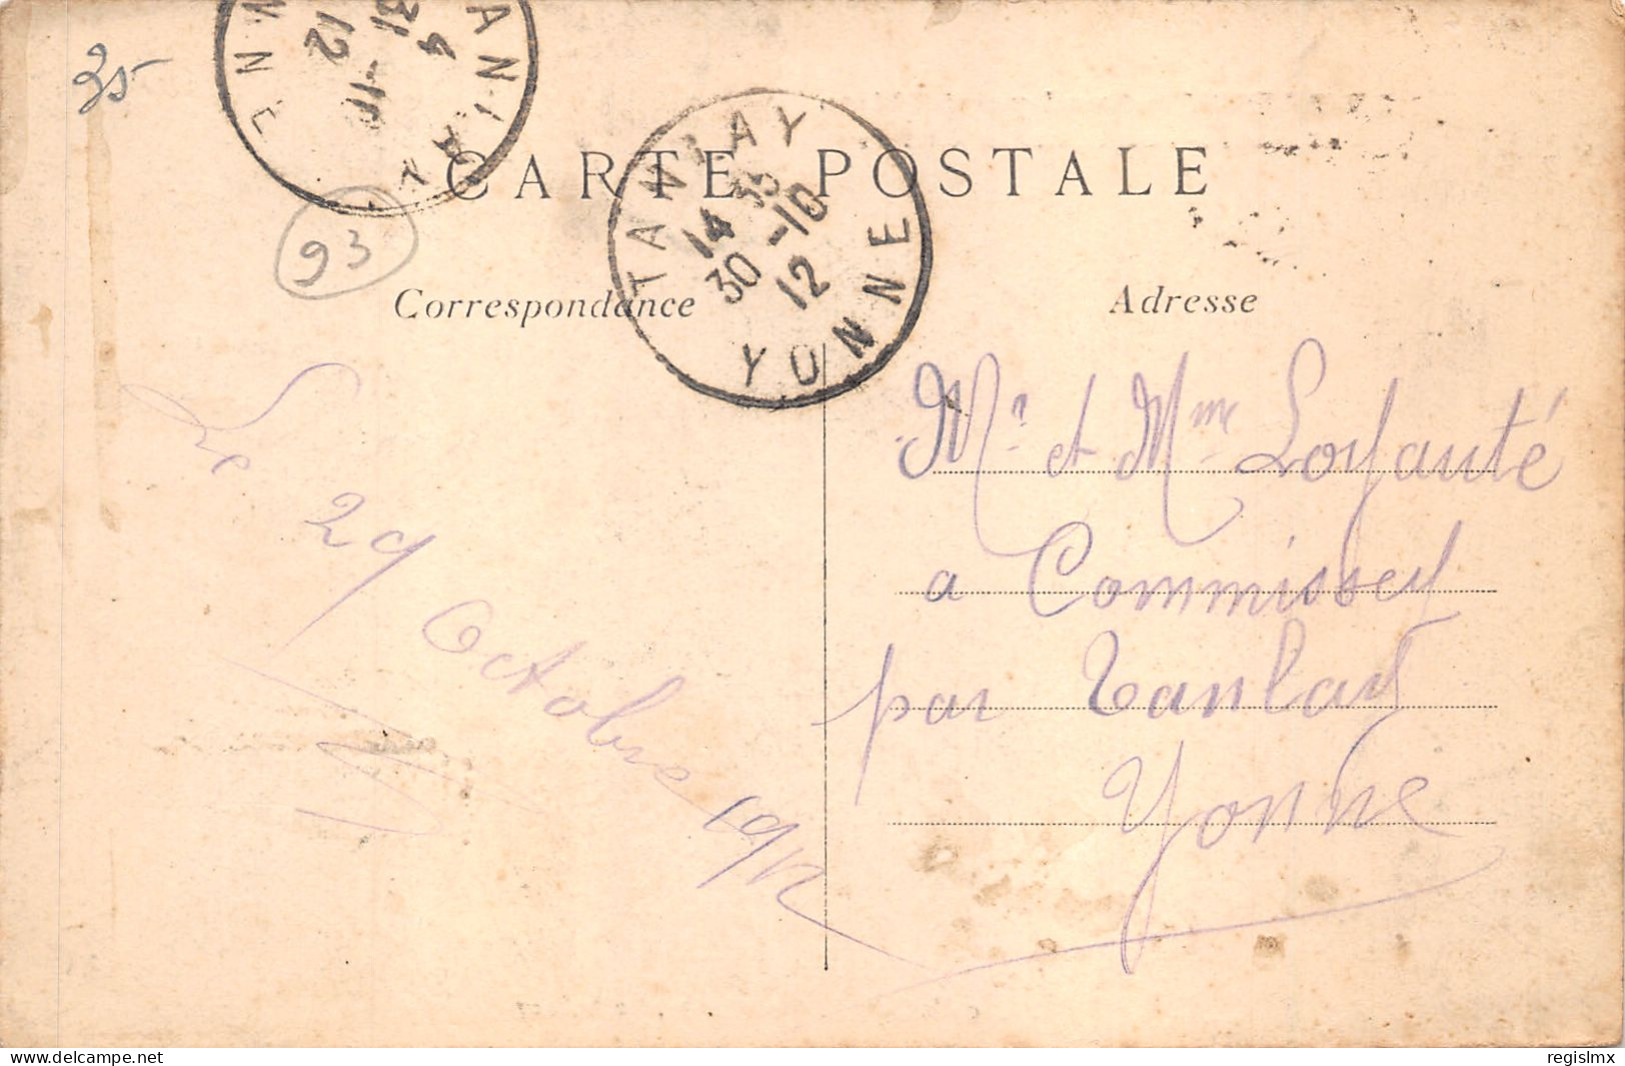 35
93
CARTE POSTALE
TANLAY
14 35
30 -10
12
YONNE
4
31
-10
12
Correspondance
Adresse
Le 29 Octobre 1912
Mr et Mme Loyauté
a Commissey
par Tanlay
Yonne
delcampe.net
regislmx